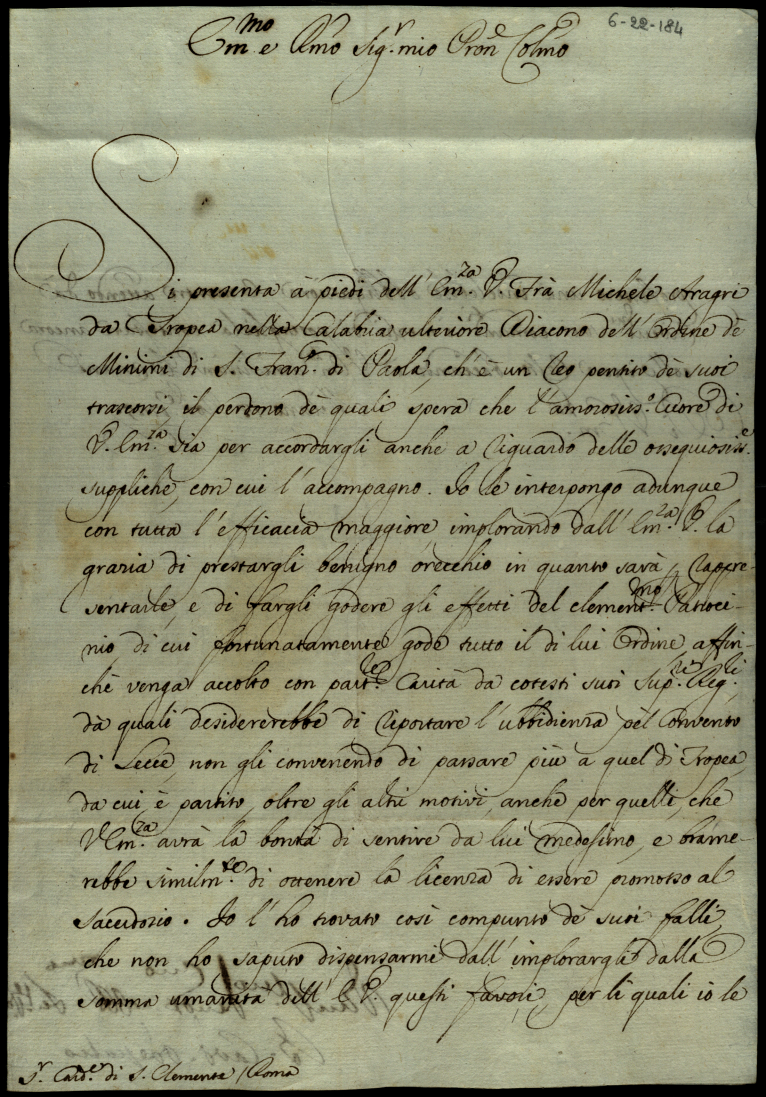 6-22-184
Em.mo e Rmo Sig.r mio Pron Colmo
Si presenta à piedi dell' Em.za V. Frà Michele Aragri
da Tropea nella Calabria ulteriore Diacono dell' Ordine dè
Minimi di S. Fran.co di Paola, ch' è un Reo pentito dè suoi
trascorsi, il perdono dè quali spera che l'amorosiss.o Cuore di
V. Em.za sia per accordargli anche a riguardo delle ossequiosiss.e
suppliche, con cui l'accompagno. Io le interpongo adunque
con tutta l'efficacia maggiore implorando dall' Em.za V. la
grazia di prestargli benigno orecchio in quanto sarà p rappre-
sentarle, e di fargli godere gli effetti del clement.mo Patroci-
nio, di cui fortunatamente gode tutto il di lui Ordine, affin-
chè venga accolto con part.re Carità da cotesti suoi Sup.ri Reg.li
dà quali desidererebbe di riportare l'ubbidienza pel Convento
di Lecce, non gli convenendo di passare più a quel di Tropea,
da cui è partito, oltre gli altri motivi, anche per quelli, che
V Em.za avrà la bontà di sentire da lui medesimo, e brame-
rebbe similm.te di ottenere la licenza di essere promosso al
Sacerdozio. Io l'ho trovato così compunto dè suoi falli,
che non ho saputo dispensarmi dall' implorargli dalla
somma umanità dell' E V. questi favori, per li quali io le
S.r Card.e di S. Clemente / Roma